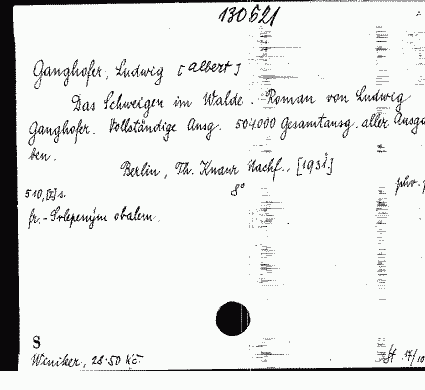 130521
Ganghofer, Ludwig [Albert]
Das Schweigen im Walde. Roman von Ludwig
Ganghofer. Vollständige Ausg. 504.000 Gesamtausg. aller Ausga
ben.
Berlin, Th. Knaur Nachf., [1931]
8°
510, [I] s.
fr. - S vlepeným obalem.
S
Winiker, 28.50 Kč.